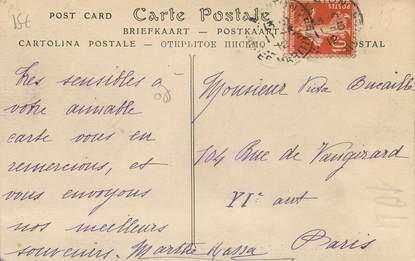 15€
POST CARD Carte Postale
BRIEFKAART - POSTKAART
CARTOLINA POSTALE - ОТКРЫТОЕ ПИСЬМО POSTAL
10
Très sensibles à
votre aimable
carte vous en
remercions, et
vous envoyons
nos meilleurs
souvenirs. Marthe Massa
Monsieur Bucaille
104 Rue de Vaugirard
VIe arrt
Paris